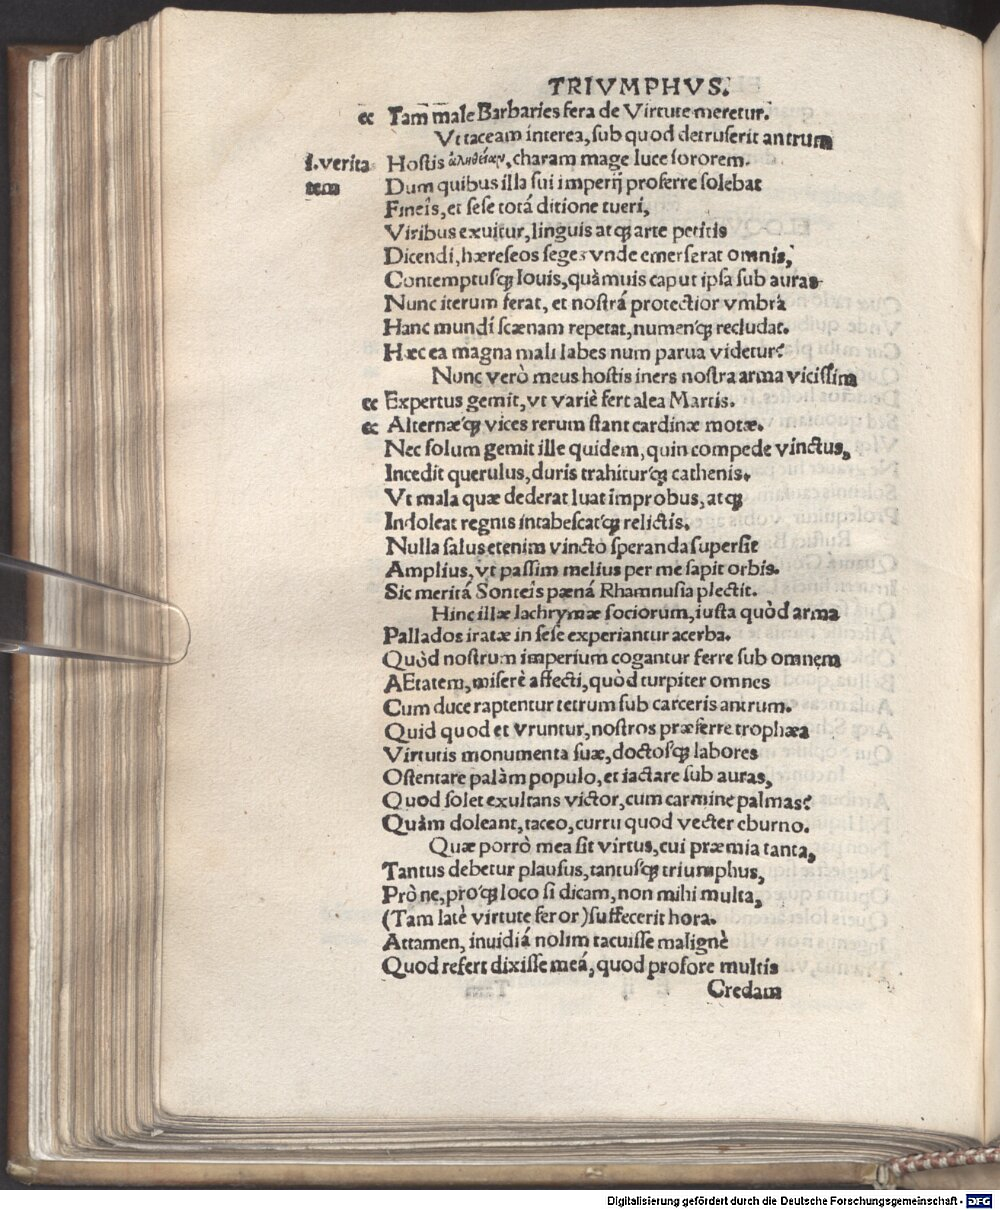 TRIVMPHVS.
cc Tam male Barbaries fera de Virtute meretur.
Vt taceam interea, sub quod detruserit antrum
I. verita Hostis ἀληθείαν, charam mage luce sororem.
tem Dum quibus illa sui imperij proferre solebat
Fineis, et sese totá ditione tueri,
Viribus exuitur, linguis atq; arte petitis
Dicendi, hæreseos seges vnde emerserat omnis,
Contemptusq; Iouis, quàmuis caput ipsa sub auras
Nunc iterum ferat, et nostrá protectior vmbrá
Hanc mundi scænam repetat, numenq; recludat.
Hæc ea magna mali labes num parua videtur?
Nunc verò meus hostis iners nostra arma vicissim
cc Expertus gemit, vt variè fert alea Martis.
cc Alternæq; vices rerum stant cardinæ motæ.
Nec solum gemit ille quidem, quin compede vinctus,
Incedit querulus, duris trahiturq; cathenis.
Vt mala quæ dederat luat improbus, atq;
Indoleat regnis intabescatq; relictis.
Nulla salus etenim vincto speranda supersit
Amplius, vt passim melius per me sapit orbis.
Sic meritá Sonteis pæná Rhamnusia plectit.
Hinc illæ lachrymæ sociorum, iusta quòd arma
Pallados iratæ in sese experiantur acerba.
Quòd nostrum imperium cogantur ferre sub omnem
AEtatem, miserè affecti, quòd turpiter omnes
Cum duce raptentur tetrum sub carceris antrum.
Quid quod et vruntur, nostros præferre trophæa
Virtutis monumenta suæ, doctosq; labores
Ostentare palàm populo, et iactare sub auras,
Quod solet exultans victor, cum carmine palmas?
Quàm doleant, taceo, curru quod vecter eburno.
Quæ porrò mea sit virtus, cui præmia tanta,
Tantus debetur plausus, tantusq; triumphus,
Prò ne, proq; loco si dicam, non mihi multa,
(Tam latè virtute feror) suffecerit hora.
Attamen, inuidiá nolim tacuisse malignè
Quod refert dixisse meá, quod profore multis
Credam
Digitalisierung gefördert durch die Deutsche Forschungsgemeinschaft - DFG